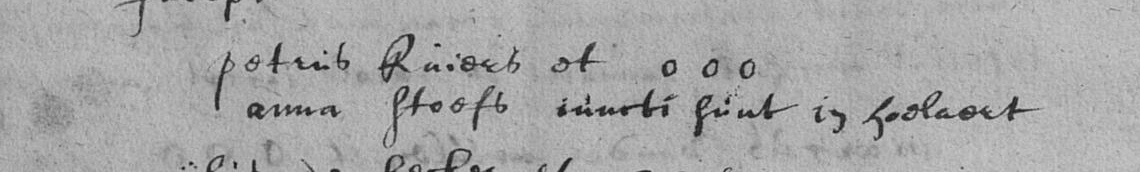 petrus Ruiers et o o o
anna stoefs iuncti sunt in hoelaert